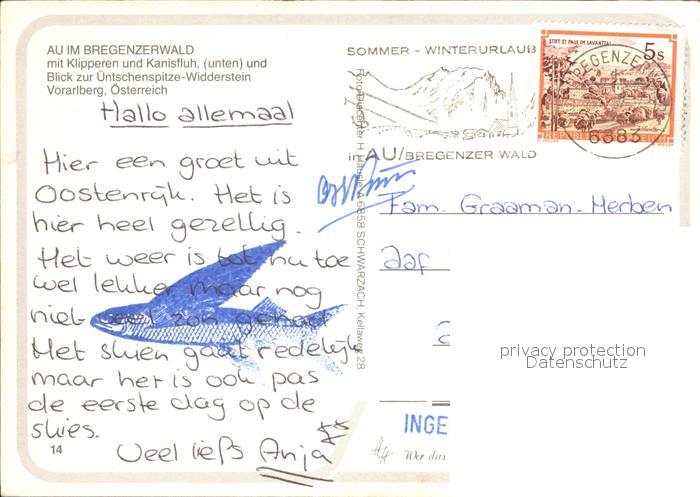 AU IM BREGENZERWALD
mit Klipperen und Kanisfluh, (unten) und
Blick zur Üntschenspitze-Widderstein
Vorarlberg, Österreich
Hallo allemaal
Hier een groet uit
Oostenrijk. Het is
hier heel gezellig.
Het weer is tot nu toe
wel lekker maar nog
niet veel zon gehad
Het skiën gaat redelijk
maar het is ook pas
de eerste dag op de
skies.
Veel liefs Anja
14
SOMMER - WINTERURLAUB
in AU/BREGENZER WALD
STIFT ST. PAUL IM LAVANTTAL
5s
REPUBLIK
6883
A 6858 SCHWARZACH, Kellaweg 28
Fam. Graaman-Merben
aaf
INGE
Wer das
privacy protection
Datenschutz